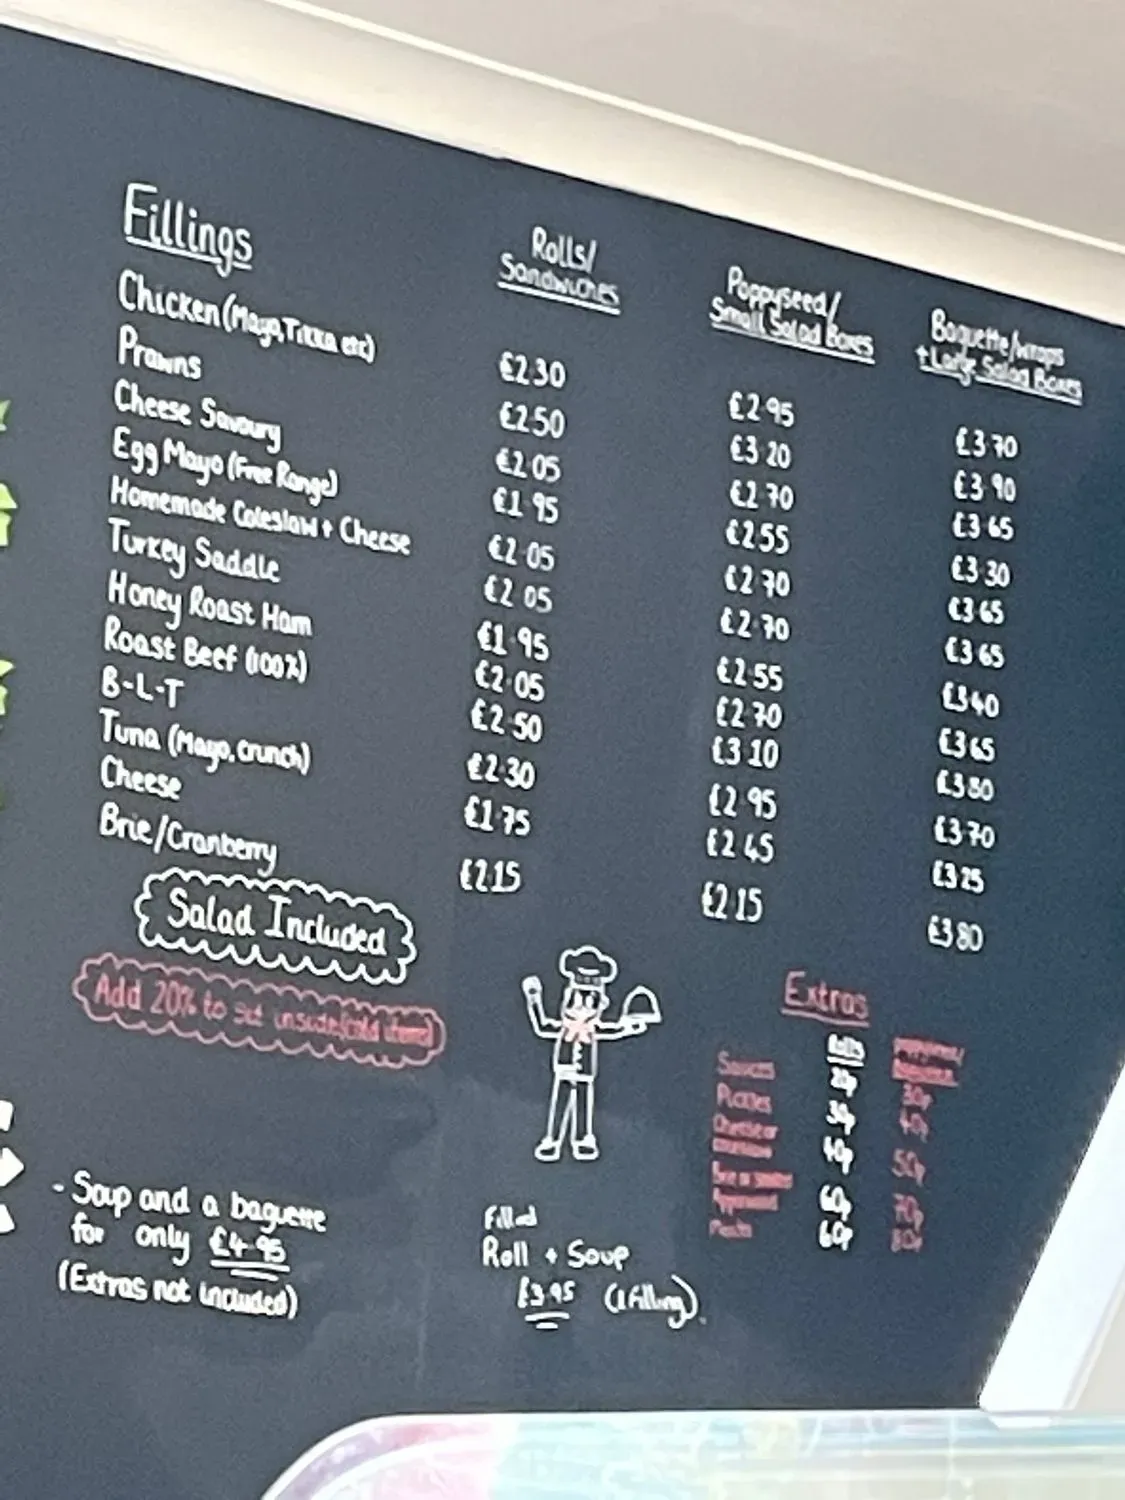 Fillings
Rolls/
Sandwiches
Poppyseed/
Small Salad Boxes
Baguette/wraps
+ Large Salad Boxes
Chicken (Mayo, Tikka etc) £2.30 £2.95 £3.70
Prawns £2.50 £3.20 £3.90
Cheese Savoury £2.05 £2.70 £3.65
Egg Mayo (Free Range) £1.95 £2.55 £3.30
Homemade Coleslaw + Cheese £2.05 £2.70 £3.65
Turkey Saddle £2.05 £2.70 £3.65
Honey Roast Ham £1.95 £2.55 £3.40
Roast Beef (100%) £2.05 £2.70 £3.65
B-L-T £2.50 £3.10 £3.80
Tuna (Mayo, crunch) £2.30 £2.95 £3.70
Cheese £1.75 £2.45 £3.25
Brie/Cranberry £2.15 £2.15 £3.80
Salad Included
Add 20% to sit inside (cold items)
Extras
Rolls
Sauces 20p 30p
Pickles 30p 40p
Cheese or
40p 50p
60p 70p
Pasta 60p 80p
- Soup and a baguette
for only £4.95
(Extras not included)
Filled
Roll + Soup
£3.95 (1 filling).